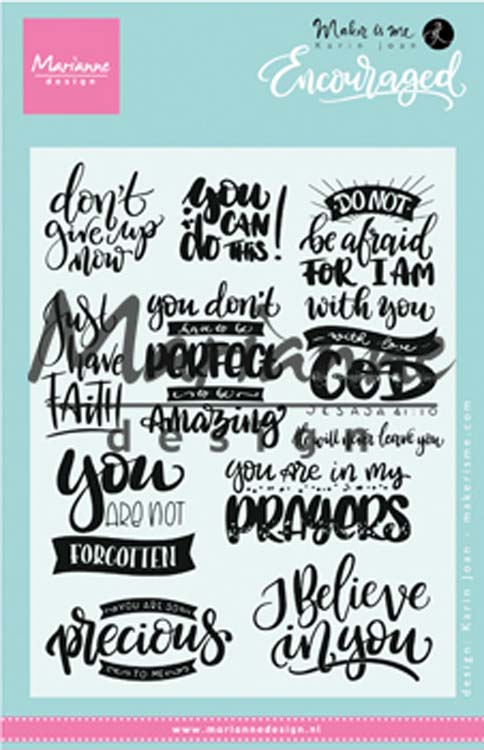 Marianne
design
Maker is me
Karin Joan
Encouraged
don't
give up
now
you
CAN
do THIS!
DO NOT
be afraid
FOR I AM
with you
with love
GOD
JESAJA 41:10
He will never leave you
Just
have
FAITH
you don't
have to be
PERFECT
to be
Amazing
Marianne
design
you
ARE NOT
FORGOTTEN
you ARE in my
PRAYERS
YOU ARE SO
precious
TO ME
I Believe
in you
design: Karin Joan - makerisme.com
www.mariannedesign.nl